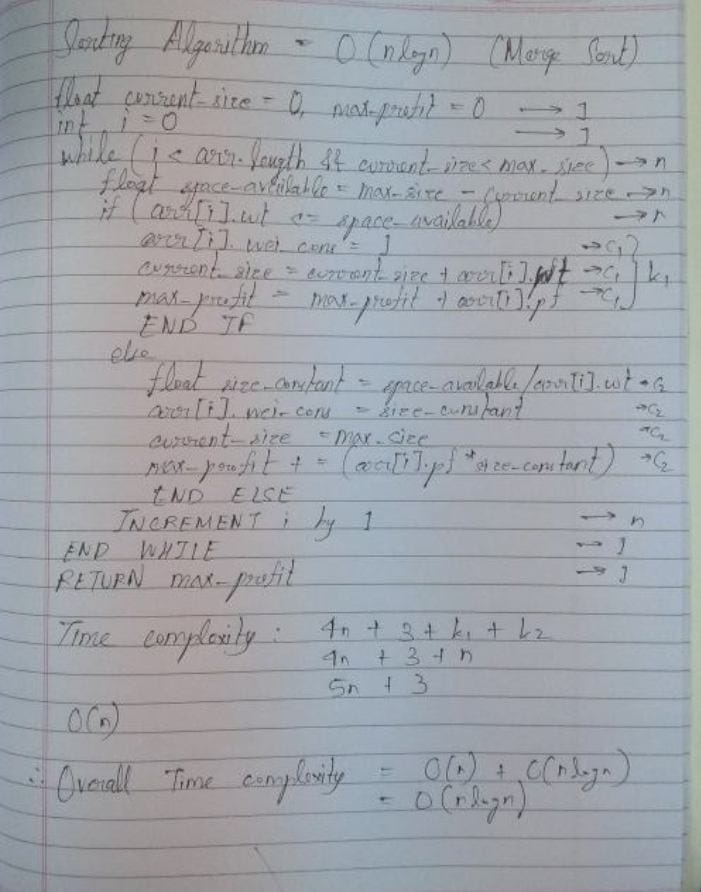 Sorting Algorithm = O(nlogn) (Merge Sort)
float current_size = 0, max_profit = 0 → 1
int i = 0 → 1
while (i < arr.length && current_size < max_size) → n
float space_available = max_size - current_size → n
if (arr[i].wt <= space_available) → n
arr[i].wei_cons = 1 → c1
current_size = current_size + arr[i].wt → c1 } k1
max_profit = max_profit + arr[i].pf → c1
END IF
else
float size_constant = space_available/arr[i].wt → c2
arr[i].wei_cons = size_constant → c2
current_size = max_size → c2
max_profit += (arr[i].pf * size_constant) → c2
END ELSE
INCREMENT i by 1 → n
END WHILE → 1
RETURN max_profit → 1
Time complexity : 4n + 3 + k1 + k2
4n + 3 + n
5n + 3
O(n)
∴ Overall Time complexity = O(n) + O(nlogn)
= O(nlogn)